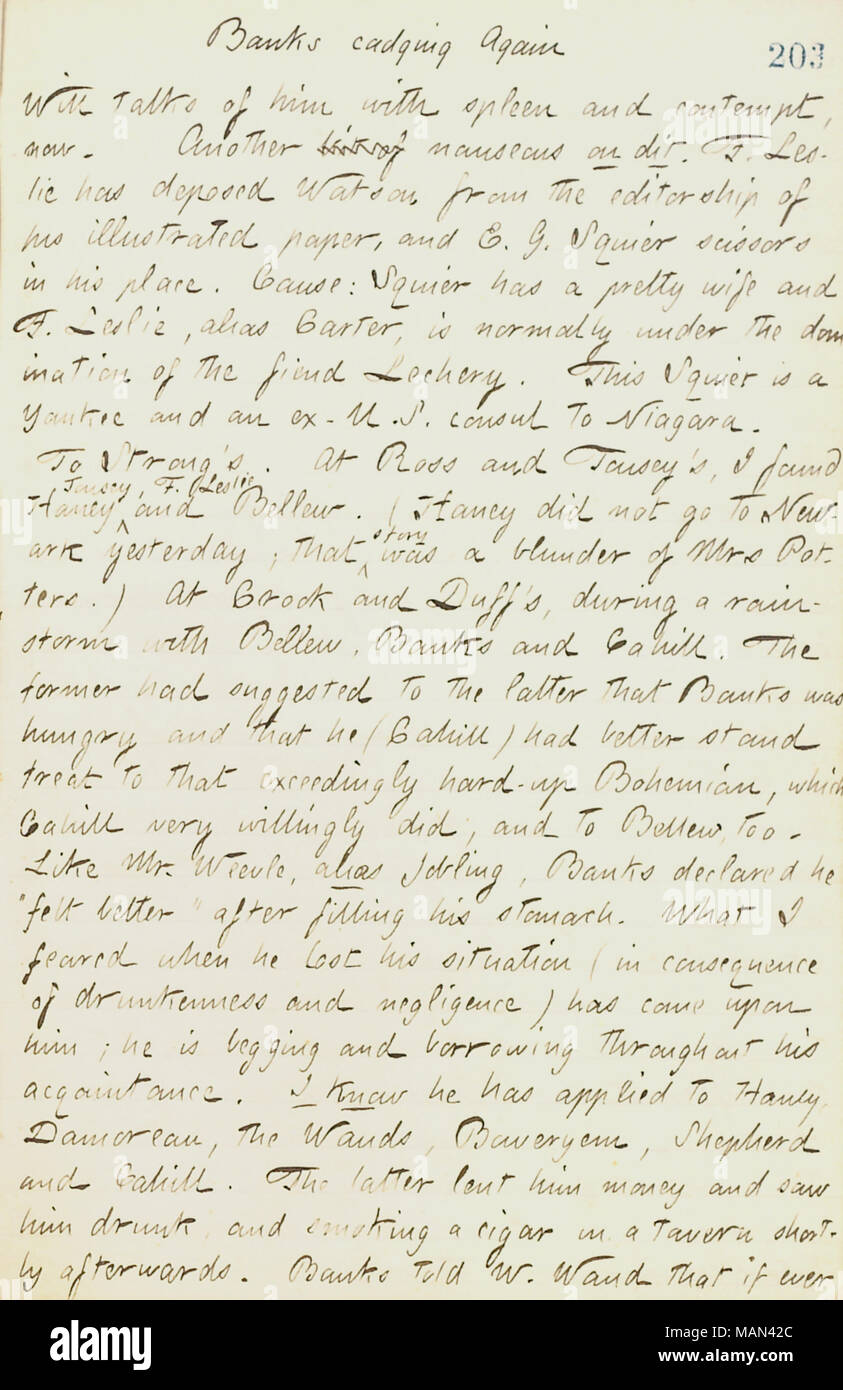 Banks cadging Again
203
Will talks of him with spleen and contempt,
now. Another bit of nauseous on dit. F. Les-
lie has deposed Watson from the editorship of
his illustrated paper, and E. G. Squier scissors
in his place. Cause: Squier has a pretty wife and
F. Leslie, alias Carter, is normally under the dom
ination of the fiend Lechery. This Squier is a
Yankee and an ex-U.S. consul to Niagara.
To Strong's. At Ross and Tousey's, I found
Tousey, F. Leslie
Haney and Bellew. (Haney did not go to New-
story
ark yesterday; that was a blunder of Mrs Pot-
ters.) At Crook and Duff's, during a rain-
storm with Bellew, Banks and Cahill. The
former had suggested to the latter that Banks was
hungry and that he (Cahill) had better stand
treat to that exceedingly hard-up Bohemian, which
Cahill very willingly did, and to Bellew, too.
Like Mr. Weevle, alias Jobling, Banks declared he
"felt better" after filling his stomach. What I
feared when he lost his situation (in consequence
of drunkenness and negligence) has come upon
him; he is begging and borrowing throughout his
acqaintance. I know he has applied to Haney,
Damoreau, the Wands, Boweryem, Shepherd
and Cahill. The latter lent him money and saw
him drunk and smoking a cigar in a tavern short-
ly afterwards. Banks told W. Waud that if ever
alamy
Image ID: MAN42C
www.alamy.com